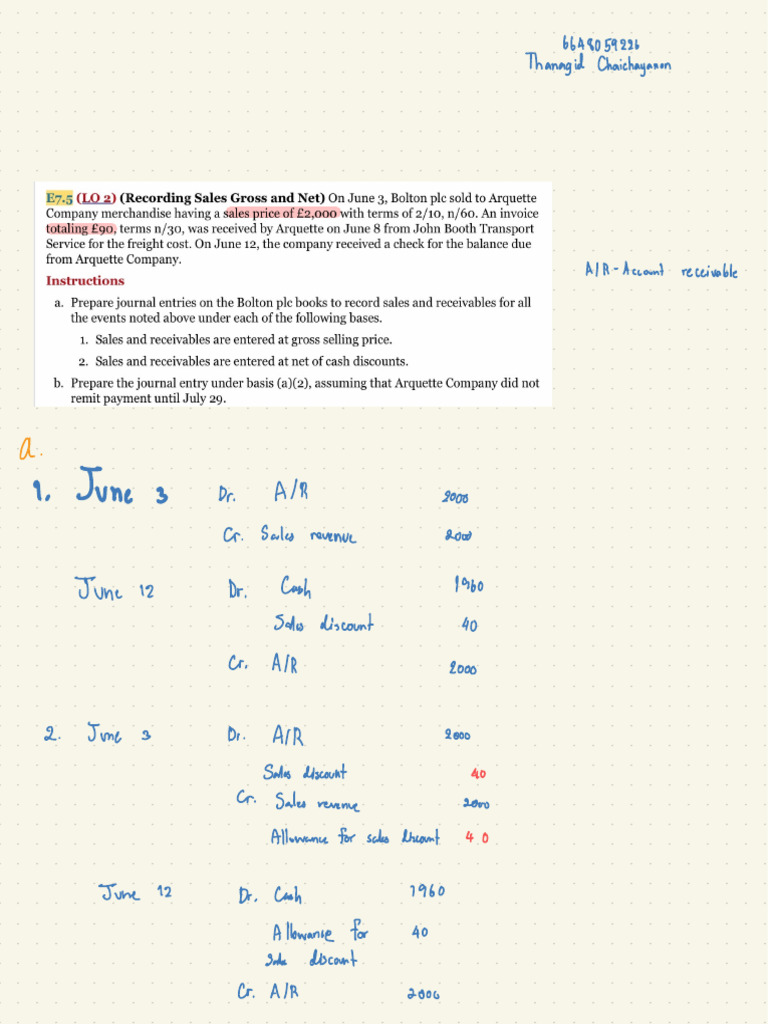 6648059226
Thanagid Chaichayanon
E7.5 (LO 2) (Recording Sales Gross and Net) On June 3, Bolton plc sold to Arquette
Company merchandise having a sales price of £2,000 with terms of 2/10, n/60. An invoice
totaling £90, terms n/30, was received by Arquette on June 8 from John Booth Transport
Service for the freight cost. On June 12, the company received a check for the balance due
from Arquette Company.
A/R - Account receivable
Instructions
a. Prepare journal entries on the Bolton plc books to record sales and receivables for all
the events noted above under each of the following bases.
1. Sales and receivables are entered at gross selling price.
2. Sales and receivables are entered at net of cash discounts.
b. Prepare the journal entry under basis (a)(2), assuming that Arquette Company did not
remit payment until July 29.
a.
1. June 3 Dr. A/R 2000
Cr. Sales revenue 2000
June 12 Dr. Cash 1960
Sales discount 40
Cr. A/R 2000
2. June 3 Dr. A/R 2000
Sales discount 40
Cr. Sales revenue 2000
Allowance for sales discount 40
June 12 Dr. Cash 1960
Allowance for 40
sales discount
Cr. A/R 2000